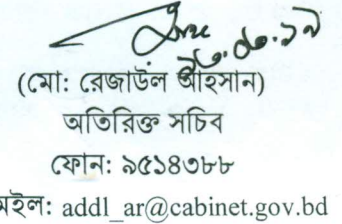 (মো: রেজাউল আহসান)
অতিরিক্ত সচিব
ফোন: ৯৫১৪৩৮৮
মইল: addl_ar@cabinet.gov.bd